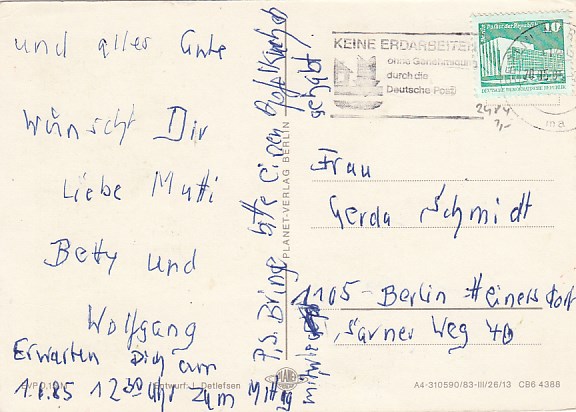 und alles Gute
wünscht Dir
Liebe Mutti
Betty und
Wolfgang
Erwarten Dich am
1.6.85 12 30 Uhr zum Mittag
P.S. Bringe bitte einen
gehabt.
PLANET-VERLAG BERLIN
KEINE ERDARBEITEN
ohne Genehmigung
durch die
Deutsche Post!
Palast der Republik
10
DEUTSCHE DEMOKRATISCHE REPUBLIK
2484
1,-
Frau
Gerda Schmidt
1105-Berlin Heinersdorf
Sarner Weg 40
Entwurf: J. Detlefsen
PLANET
A4-310590/83-III/26/13 CB6 4388